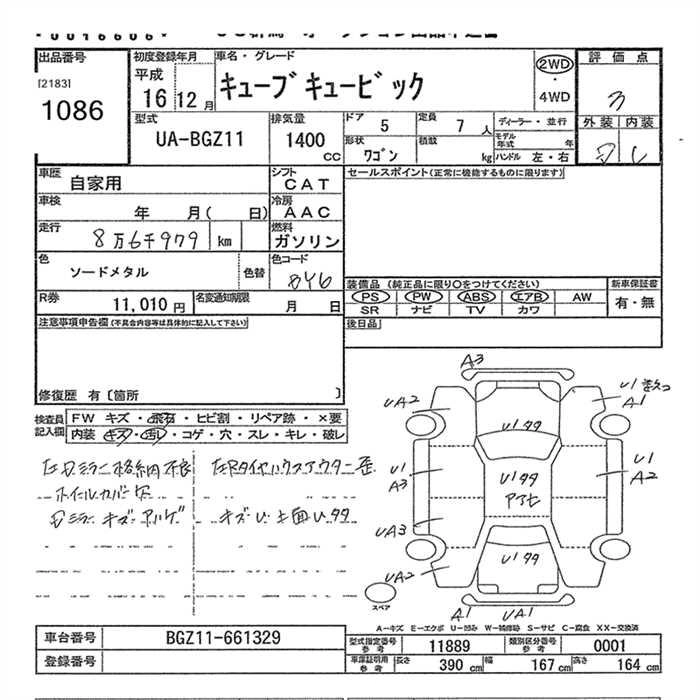 出品番号
[2183]
1086
初度登録年月
平成
16 12 月
車名・グレード
キューブ キュービック
2WD
4WD
評 価 点
3
外 装 内 装
型式
UA-BGZ11
排気量
1400
CC
ドア 5
定員 7 人
形状 ワゴン
積載 kg
ディーラー・並行
モデル年式 年
ハンドル 左・右
車歴 自家用
シフト CAT
車検 年 月( 日)
冷房 AAC
走行 8万6千979 km
燃料 ガソリン
色 ソードメタル
色替
色コード
R券 11,010 円
名変通知期限 月 日
セールスポイント(正常に機能するものに限ります)
装備品 (純正品に限り○をつけてください)
PS PW ABS エアB AW
SR ナビ TV カワ
新車保証書
有・無
後日品
注意事項申告欄 (不具合内容等は具体的に記入して下さい)
修復歴 有〔箇所 〕
検査員記入欄
FW キズ・飛石・ヒビ割・リペア跡・×要
内装 キズ・汚レ・コゲ・穴・スレ・キレ・破レ
ホイルカバー欠
A3
UA2
U1
A1
U1
A3
U1
A2
UA3
UA2
A1
UA1
スペア
A-キズ E-エクボ U-凹み W-補修跡 S-サビ C-腐食 XX-交換済
車台番号 BGZ11-661329
登録番号
型式指定番号 参考 11889
類別区分番号 参考 0001
車庫証明用 参考 長さ 390 cm 幅 167 cm 高さ 164 cm